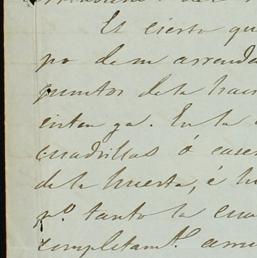 Es cierto qu
po de su arrenda
puntos de la hac
entonga. En la
cuadrillas ó caser
de la huerta, é h
pº tanto la cua
completamte. arru